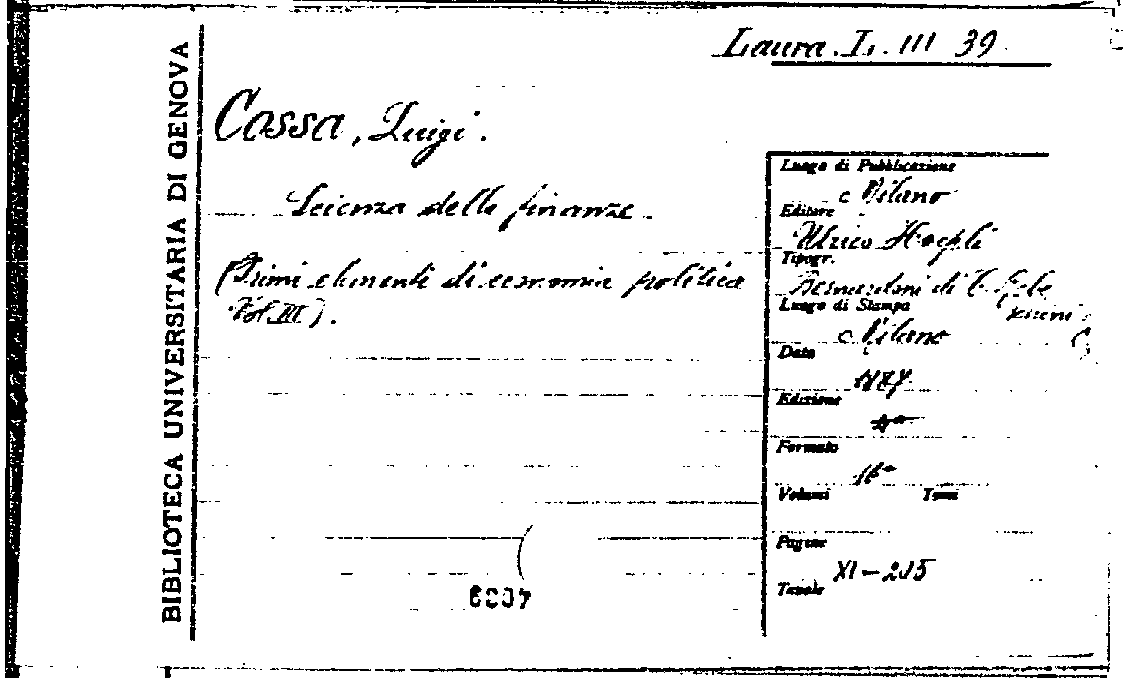 Laura. L. III 39.
BIBLIOTECA UNIVERSITARIA DI GENOVA
Cossa, Luigi.
Scienza delle finanze.
(Primi elementi di economia politica
Vol. III).
Luogo di Pubblicazione
Milano
Editore
Ulrico Hoepli
Tipogr.
Bernardoni di C.
Luogo di Stampa
Milano
Data
Edizione
4a
Formato
16°
Volumi Tomi
Pagine
XI-205
Tavole